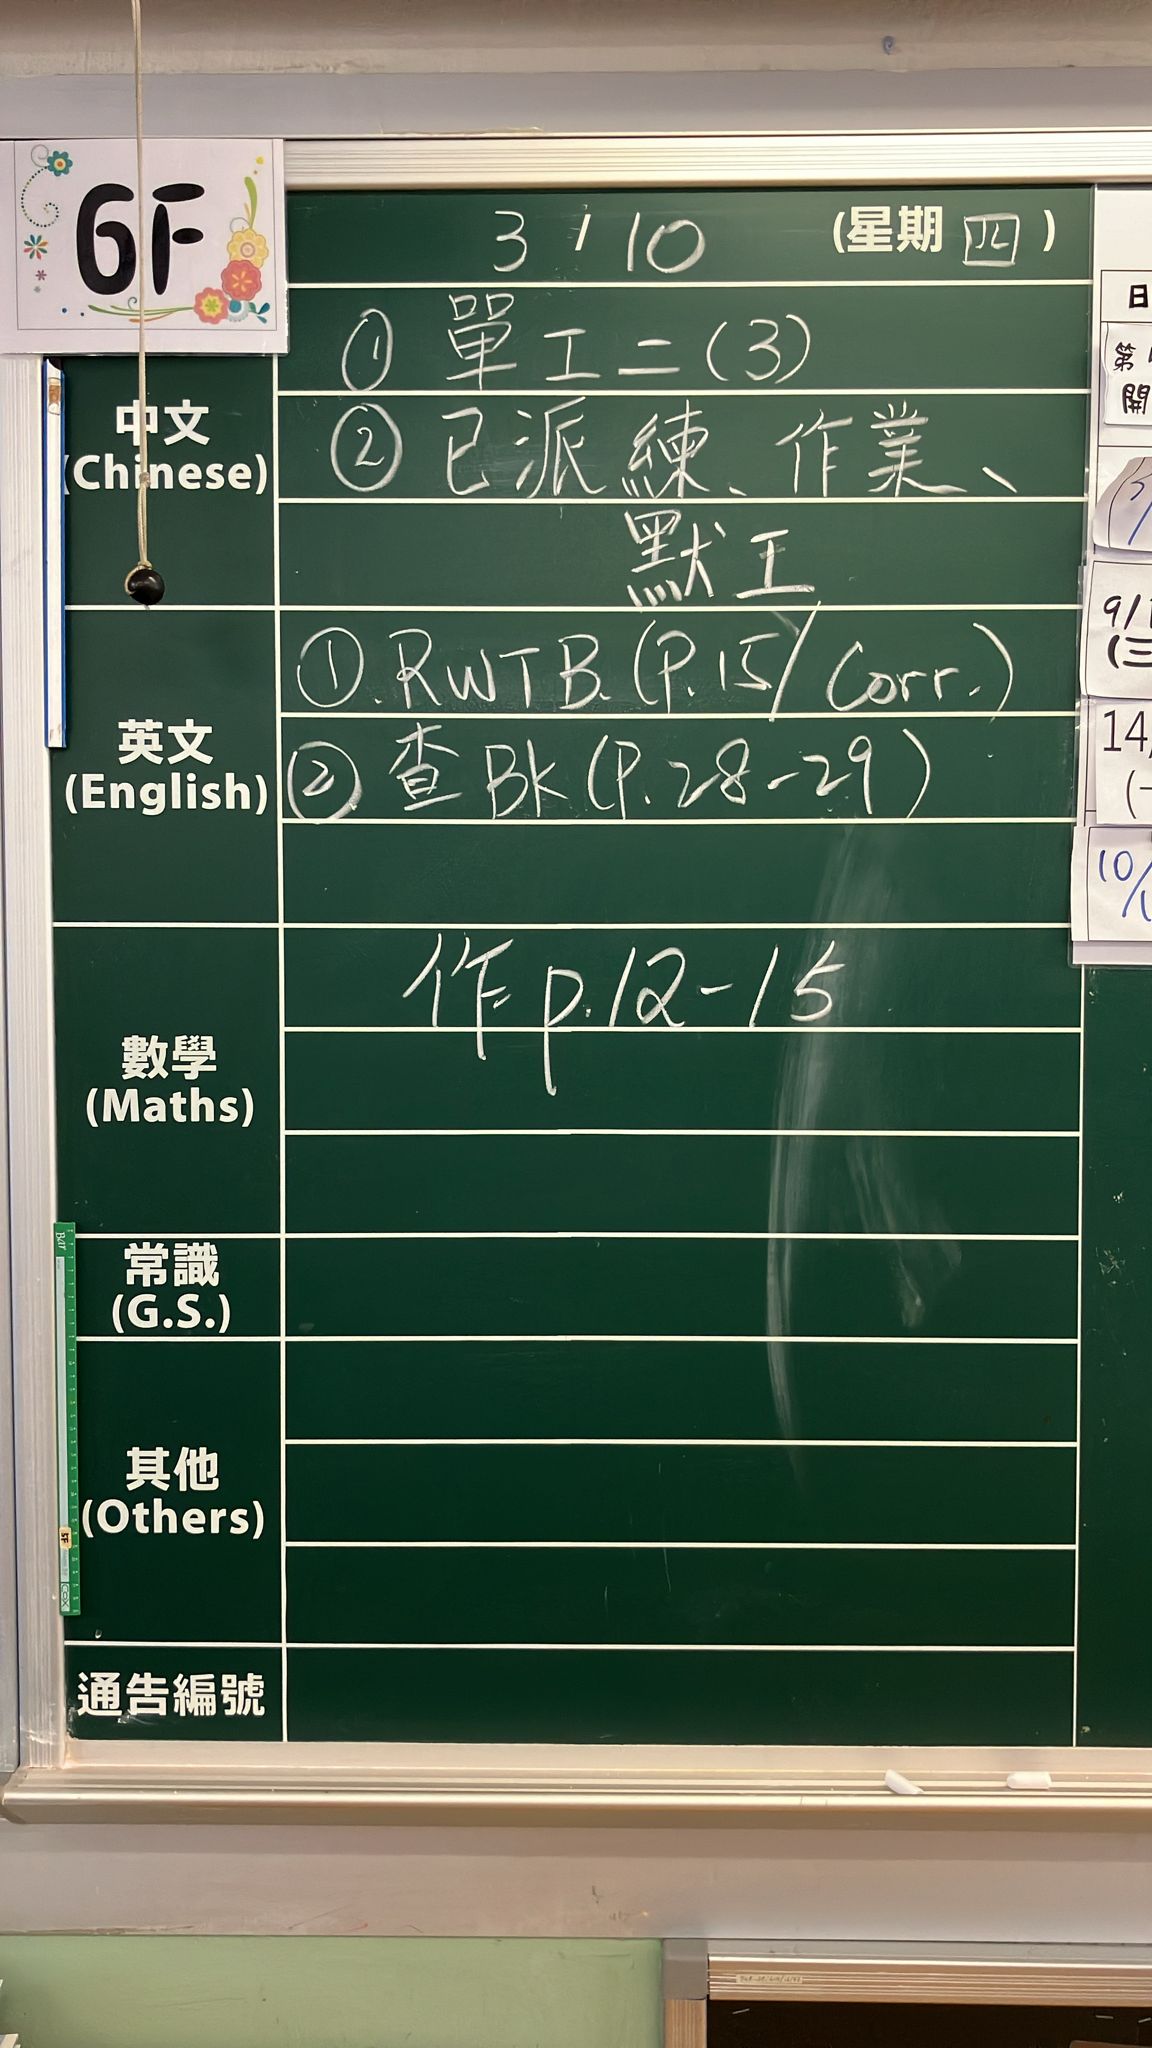 6F
3/10 (星期四)
中文
(Chinese)
① 單工二(3)
② 已派練、作業、
默工
英文
(English)
①. RWTB. (P.15/Corr.)
② 查BK(P.28-29)
數學
(Maths)
作p.12-15
常識
(G.S.)
其他
(Others)
通告編號
日
第
開
9/1
(三
14/
(一
10/
5F